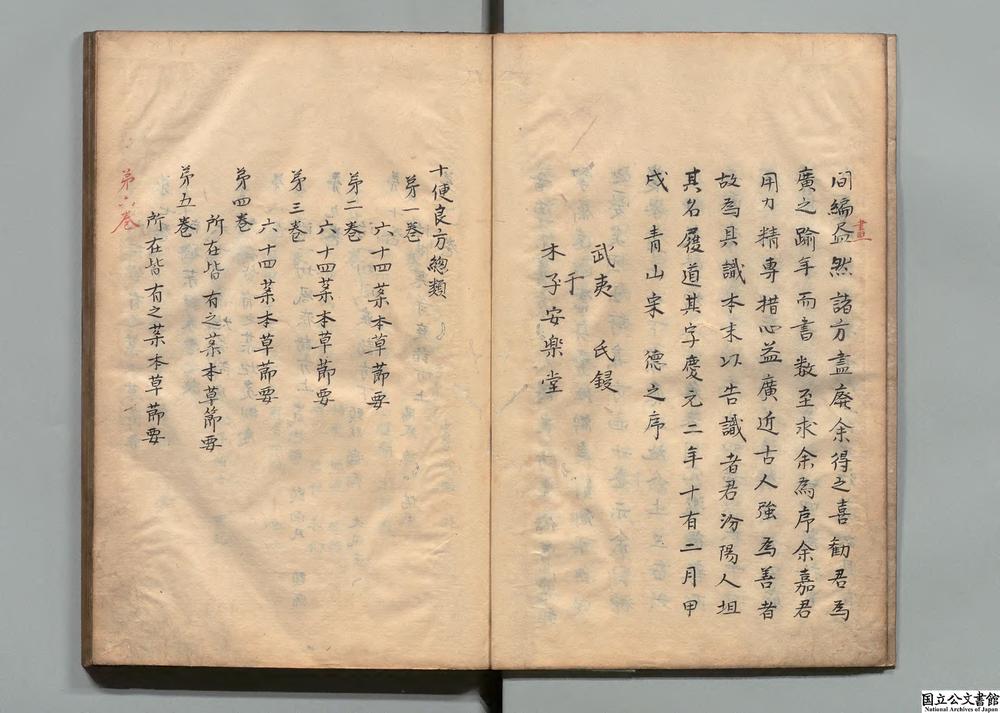 间編盎然諸方盡廃余得之喜勧君為
畫
廣之踰年而書数至求余為序余嘉君
用力精専措心益廣近古人強為善者
故為具識本末以告識者君汾陽人坦
其名履道其字慶元二年十有二月甲
戌青山宋德之序
武夷 氏鋟
于
木子安楽堂
十便良方総類
第一巻
六十四薬本草節要
第二巻
六十四薬本草節要
第三巻
六十四薬本草節要
第四巻
所在皆有之薬本草節要
第五巻
所在皆有之薬本草節要
第六巻
国立公文書館
National Archives of Japan